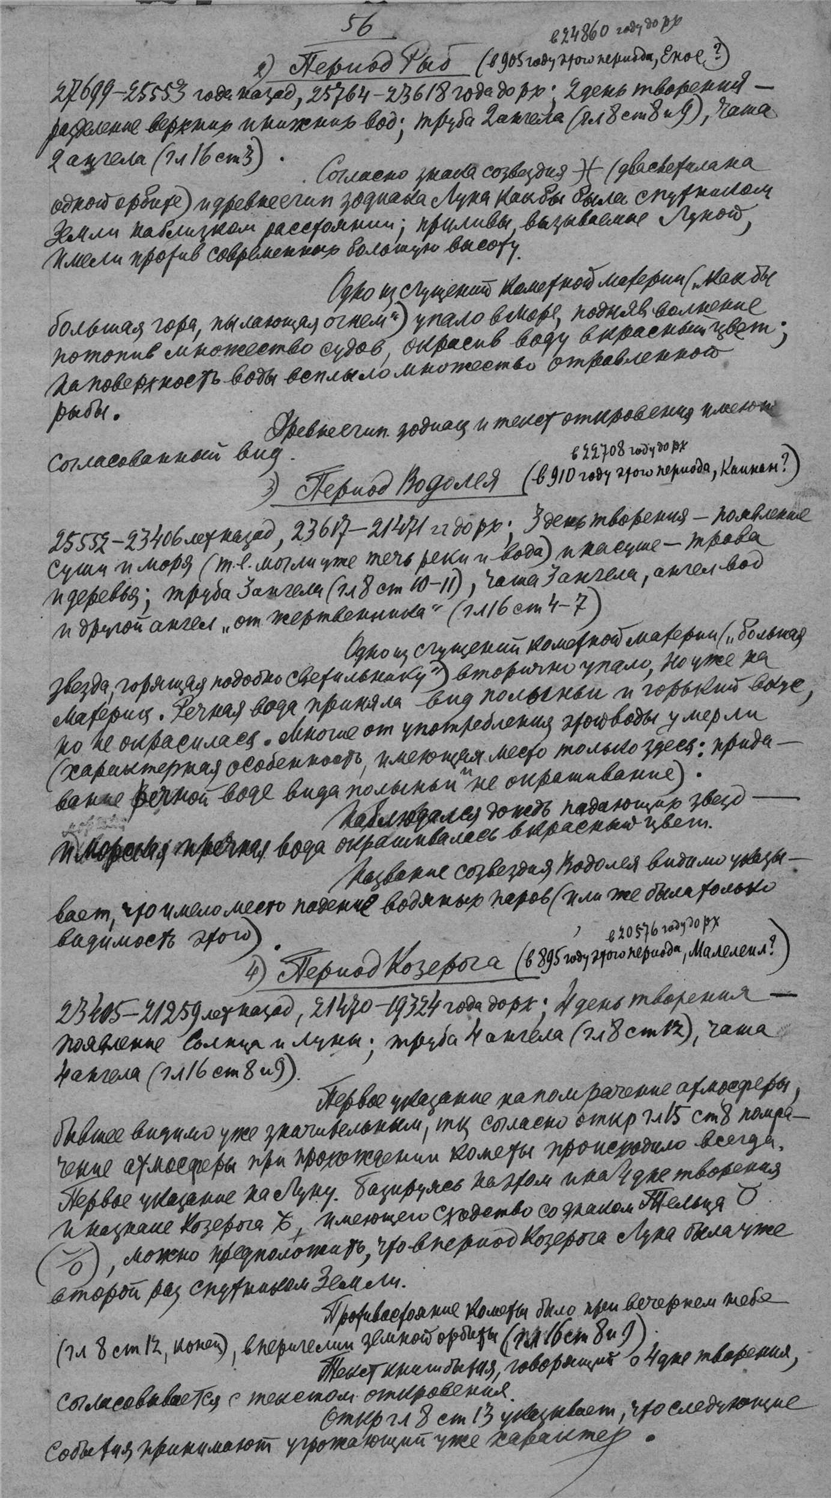 56
в 24860 году до рх
2) Период Рыб (в 905 году этого периода, Енос?)
27699–25553 года назад, 25764–23618 года до рх; 2 день творения —
разделение верхних и нижних вод; труба 2 ангела (гл 8 ст 8 и 9), чаша
2 ангела (гл 16 ст 3).
Согласно знака созвездия ♓ (два светила на
одной орбите) и древнеегип зодиака Луна как бы была спутником
Земли на близком расстоянии; приливы, вызываемые Луной,
имели против современных большую высоту.
Одно из сгущений кометной материи („как бы
большая гора, пылающая огнем") упало в море, подняв волнение
потопив множество судов, окрасив воду в красный цвет;
на поверхность воды всплыло множество отравленной
рыбы.
Древнеегип. зодиац и текст откровения имеют
согласованный вид.
в 22708 году до рх
3) Период Водолея (в 910 году этого периода, Каинан?)
25552–23406 лет назад, 23617–21471 гг до рх; 3 день творения – появление
суши и моря (т.е. могли уже течь реки и вода) и на суше – трава
и деревья; труба 3 ангела (гл 8 ст 10–11), чаша 3 ангела, ангел вод
и другой ангел „от жертвенника" (гл 16 ст 4–7)
Одно из сгущений кометной материи („большая
звезда, горящая подобно светильнику") вторично упало, но уже на
материк. Речная вода приняла вид полыньи и горький вкус,
но не окрасилась. Многие от употребления этой воды умерли
(характерная особенность, имеющая место только здесь: прида—
вание речной воде вида полыньи и не окрашивание).
Наблюдался дождь падающих звезд —
и морская и речная вода окрашивалась в красный цвет.
Название созвездия Водолея видимо указы—
вает, что имело место падение водяных паров (или же была только
видимость этого).
в 20576 году до рх
4) Период Козерога (в 895 году этого периода, Малелеил?)
23405–21259 лет назад, 21470–19324 года до рх; 4 день творения —
появление Солнца и Луны; труба 4 ангела (гл 8 ст 12), чаша
4 ангела (гл 16 ст 8 и 9).
Первое указание на помрачение атмосферы,
бывшее видимо уже значительным, тк согласно откр гл 15 ст 8 помра—
чение атмосферы при прохождении кометы происходило всегда.
Первое указание на Луну. Базируясь на этом и на 4 дне творения
и на знаке Козерога ♑, имеющего сходство со знаком Тельца ♉
, можно предположить, что в период Козерога Луна была уже
второй раз спутником Земли.
Противостояние кометы было при вечернем небе
(гл 8 ст 12, конец), в перигелии земной орбиты (гл 16 ст 8 и 9).
Текст книги бытия, говорящий о 4 дне творения,
согласовывается с текстом откровения.
Откр гл 8 ст 13 указывает, что следующие
события принимают угрожающий уже характер.